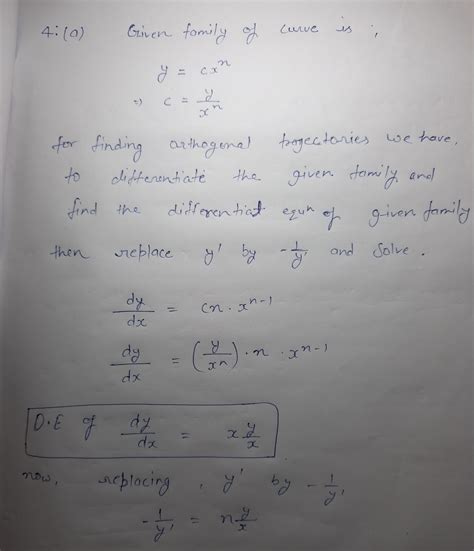 4:(a) Given family of curve is ;
y = cx^n
⇒ c = y/x^n
for finding orthogonal trajectories we have,
to differentiate the given family and
find the differential equn of given family
then replace y' by -1/y' and solve.
dy/dx = cn · x^{n-1}
dy/dx = (y/x^n) · n · x^{n-1}
D.E of dy/dx = x y/x
now, replacing, y' by -1/y'
-1/y' = n y/x